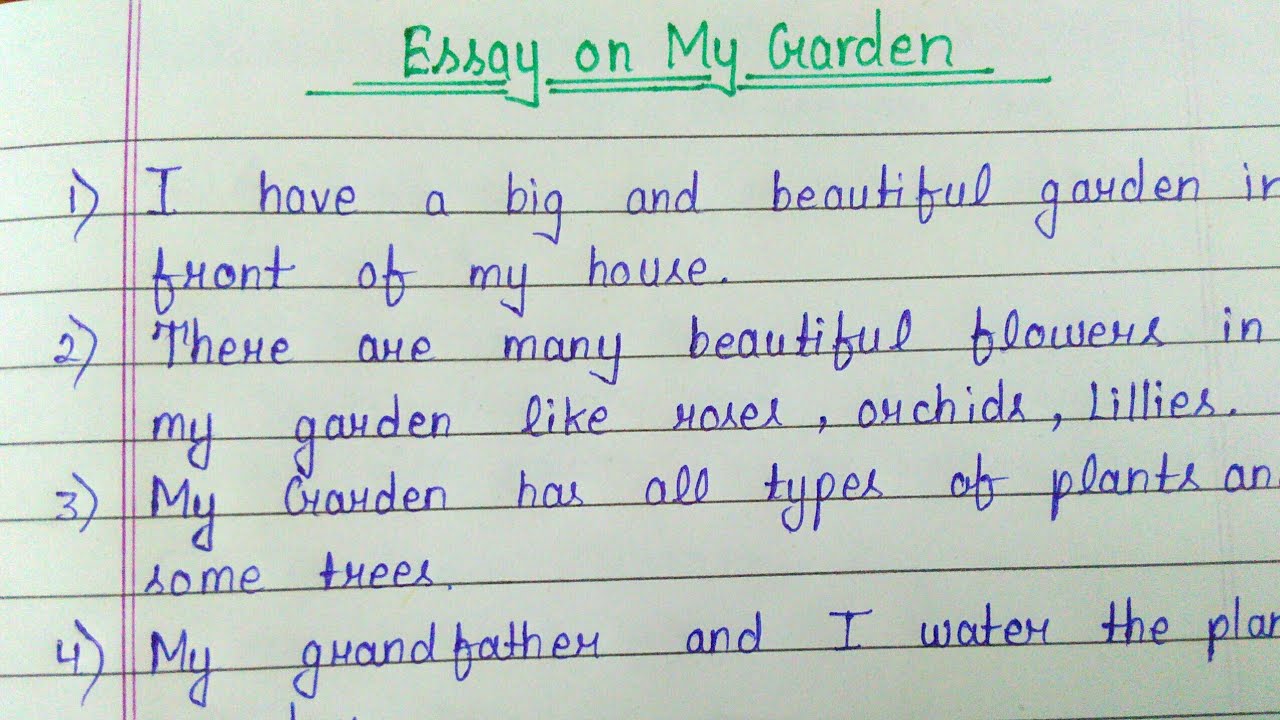 Essay on My Garden
1) I have a big and beautiful garden in
front of my house.
2) There are many beautiful flowers in
my garden like roses, orchids, Lillies.
3) My Garden has all types of plants an
some trees.
4) My grandfather and I water the plan